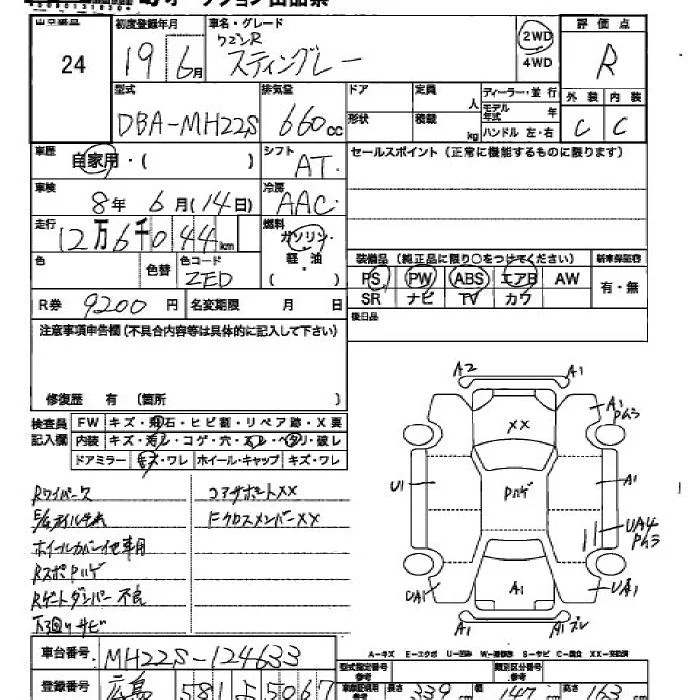 オークション出品票
出品番号 24
初度登録年月 19 6月
車名・グレード ワゴンR スティングレー
2WD
4WD
評価点 R
型式 DBA-MH22S
排気量 660cc
ドア
形状
定員 人
積載 kg
ディーラー・並行
モデル年式 年
ハンドル 左・右
外装 C
内装 C
車歴 自家用・( )
シフト AT
セールスポイント(正常に機能するものに限ります)
車検 8年 6月(14日)
冷房 AAC
走行 12万6千044km
燃料 ガソリン・軽油・( )
色
色替
色コード ZED
装備品(純正品に限り○をつけてください)
新車保証書 有・無
PS PW ABS エアB AW
SR ナビ TV カワ
R券 9200円
名変期限 月 日
後日品
注意事項申告欄(不具合内容等は具体的に記入して下さい)
修復歴 有 〔箇所 〕
検査員記入欄
FW キズ・飛石・ヒビ割・リペア跡・X要
内装 キズ・ヨゴレ・コゲ・穴・スレ・ヘタリ・破レ
ドアミラー キズ・ワレ
ホイール・キャップ キズ・ワレ
Rワイパース
コアサポートXX
E/Gオイルもれ
FクロスメンバーXX
ホイールカバー1ケ専用
RスポPハゲ
Rゲートダンパー不良
下廻りサビ
A2
A1
XX
A1
Pムラ
U1
Pハゲ
A1
UA4
Pムラ
UA1
A1
UA1
A1
A1ズレ
A-キズ E-エクボ U-凹み W-補修跡 S-サビ C-腐食 XX-交換済
車台番号 MH22S-124633
型式指定番号
類別区分番号
登録番号 広島 581 い 5067
車庫証明用参考 長さ 339cm 幅 147cm 高さ 163cm